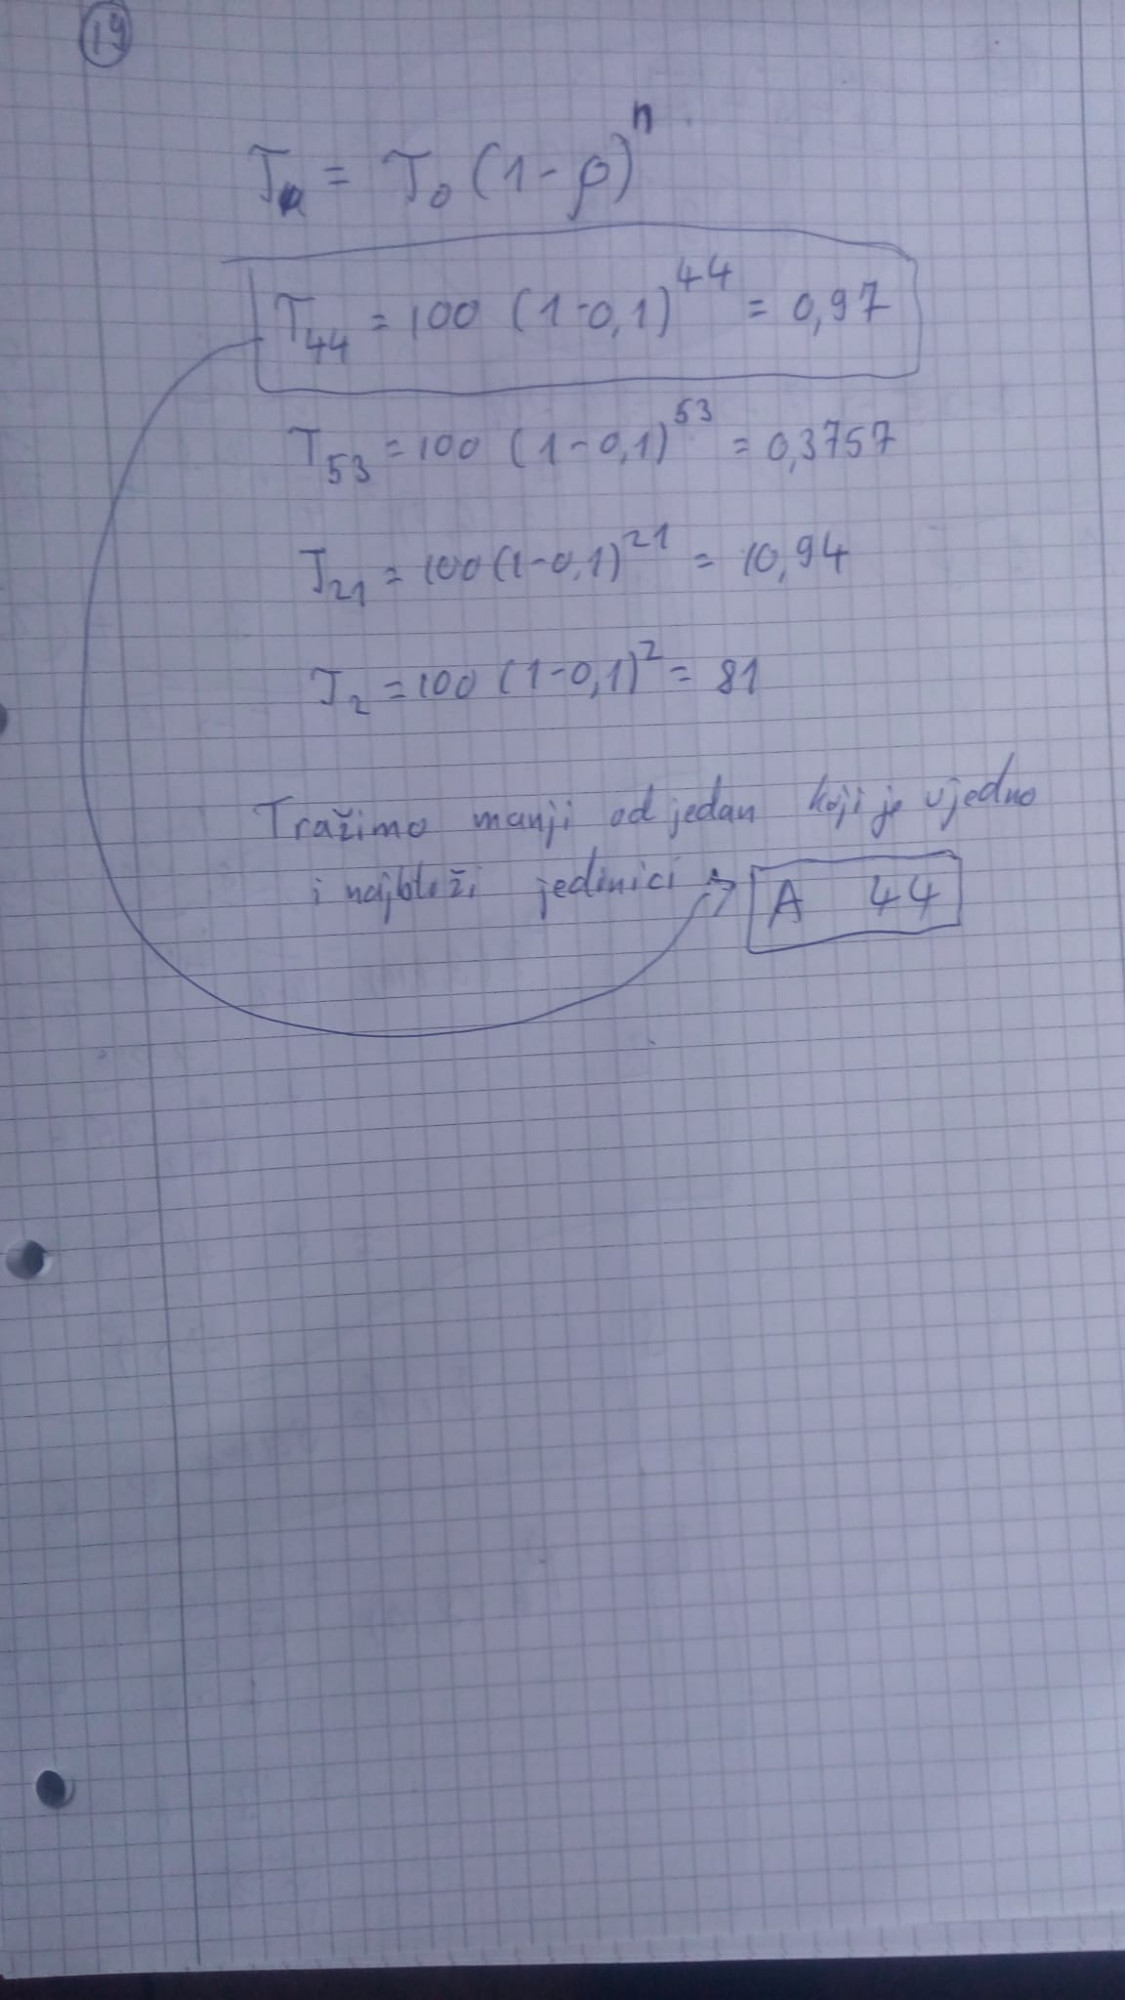 19
Tn = T0 (1-p)^n
T44 = 100 (1-0,1)^44 = 0,97
T53 = 100 (1-0,1)^53 = 0,3757
T21 = 100(1-0,1)^21 = 10,94
T2 = 100 (1-0,1)^2 = 81
Tražimo manji od jedan koji je ujedno
i najbliži jedinici → A 44